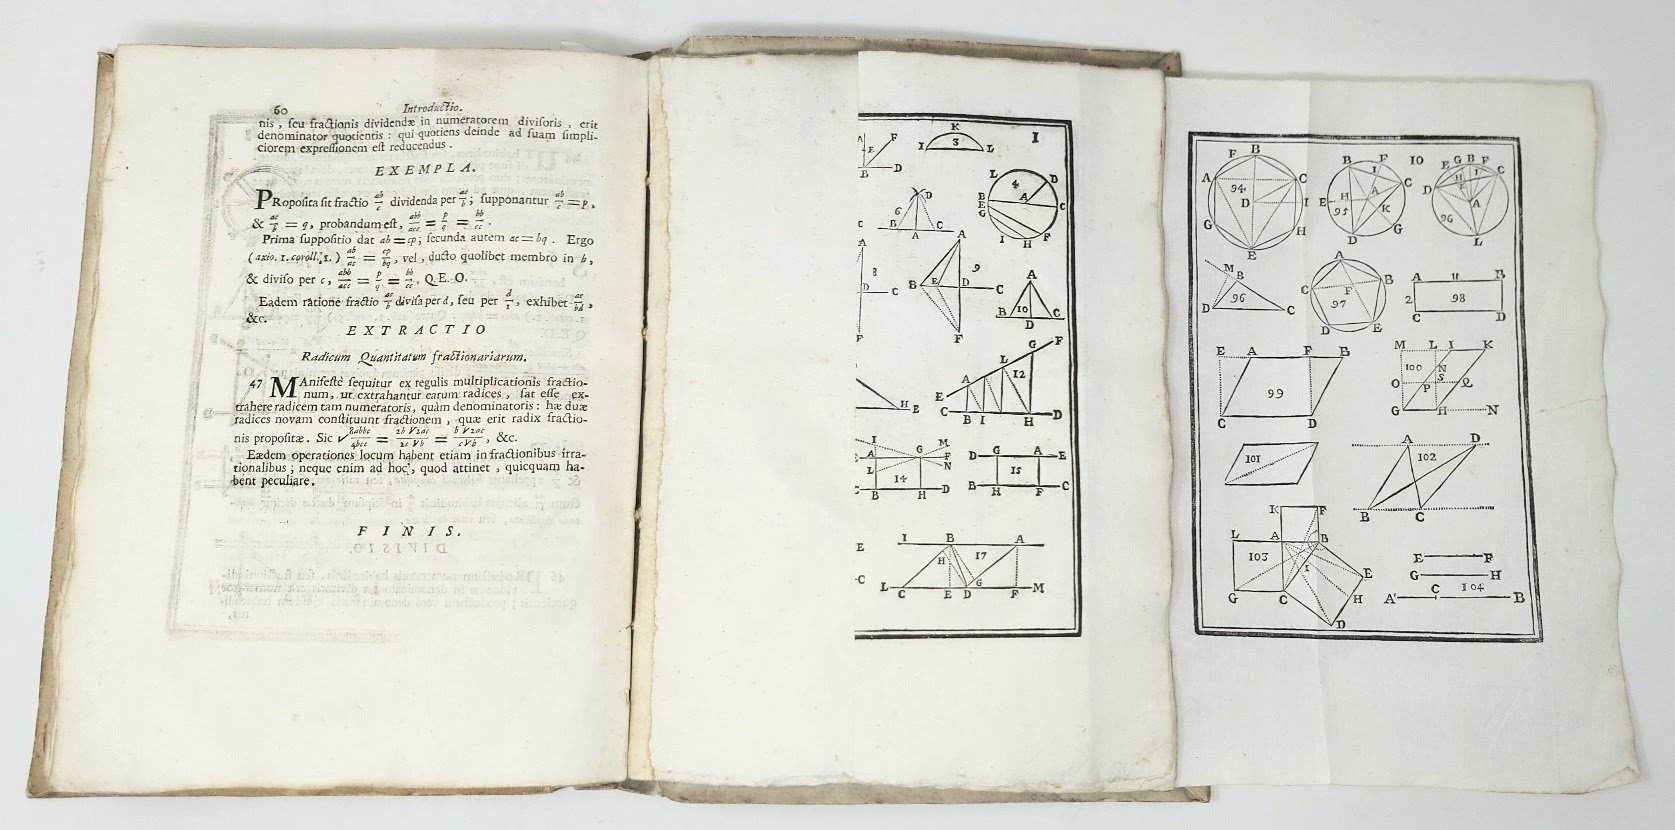 60 Introductio.
nis, seu fractionis dividendæ in numeratorem divisoris, erit
denominator quotientis: qui quotiens deinde ad suam simpli-
ciorem expressionem est reducendus.
EXEMPLA.
PRoposita sit fractio ab/c dividenda per ac/b; supponantur ab/c = p,
& ac/b = q, probandum est, abb/acc = p/q = bb/cc.
Prima suppositio dat ab = cp; secunda autem ac = bq. Ergo
(axio. 1. coroll. 1.) ab/ac = cp/bq, vel, ducto quolibet membro in b,
& diviso per c, abb/acc = p/q = bb/cc, Q.E.O.
Eadem ratione fractio ac/b divisa per d, seu per d/1, exhibet ac/bd,
&c.
EXTRACTIO
Radicum Quantitatum fractionariarum.
47 MAnifestè sequitur ex regulis multiplicationis fractio-
num, ut extrahantur earum radices, sat esse ex-
trahere radicem tam numeratoris, quàm denominatoris: hæ duæ
radices novam constituunt fractionem, quæ erit radix fractio-
nis propositæ. Sic √8abbc/4bcc = 2b√2ac/2c√b = b√2ac/c√b, &c.
Eædem operationes locum habent etiam in fractionibus irra-
tionalibus; neque enim ad hoc, quod attinet, quicquam ha-
bent peculiare.
FINIS.
I
F E D B
K I 3 L
L D 4 B A E C G I H F
D 6 C B A C
A 8 D C F
A 9 B E D C F
A 10 B D C
F G L 12 A E C B I H D
H E
I G M A F L N 14 C B H D
D G A E 15 B H F C
E I B A H 17 C L C E D G F M
10
F B A C 94 D I G H E
B F I C A H E 95 K D G
E G B F C D H I E A 96 L
M B 96 D C
A C B F 97 D E
A 11 B 2 98 C D
E A F B 99 C D
M L I K 100 N S O P Q G H N
101
A D 102 B C
K F L A B 103 I E G C H D
E F
G H
C 104
A B